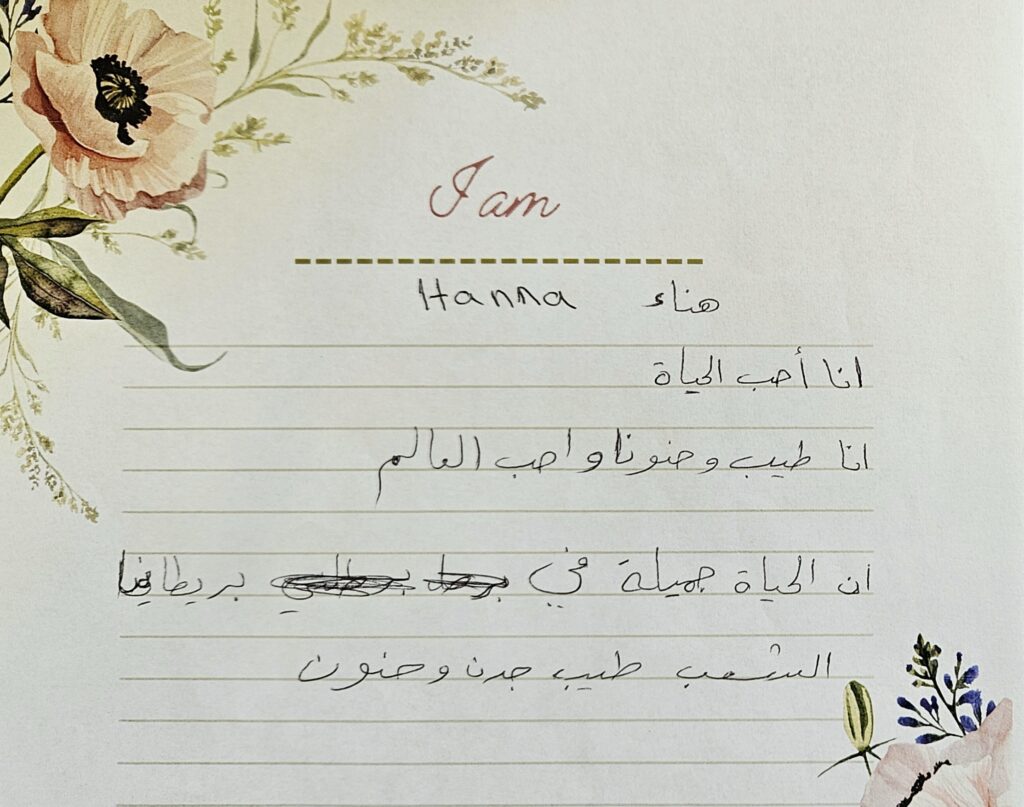 I am
Hanna هناء
انا أحب الحياة
انا طيب وحنونا واحب العالم
ان الحياة جميلة في بريطانيا
الشعب طيب جدن وحنون